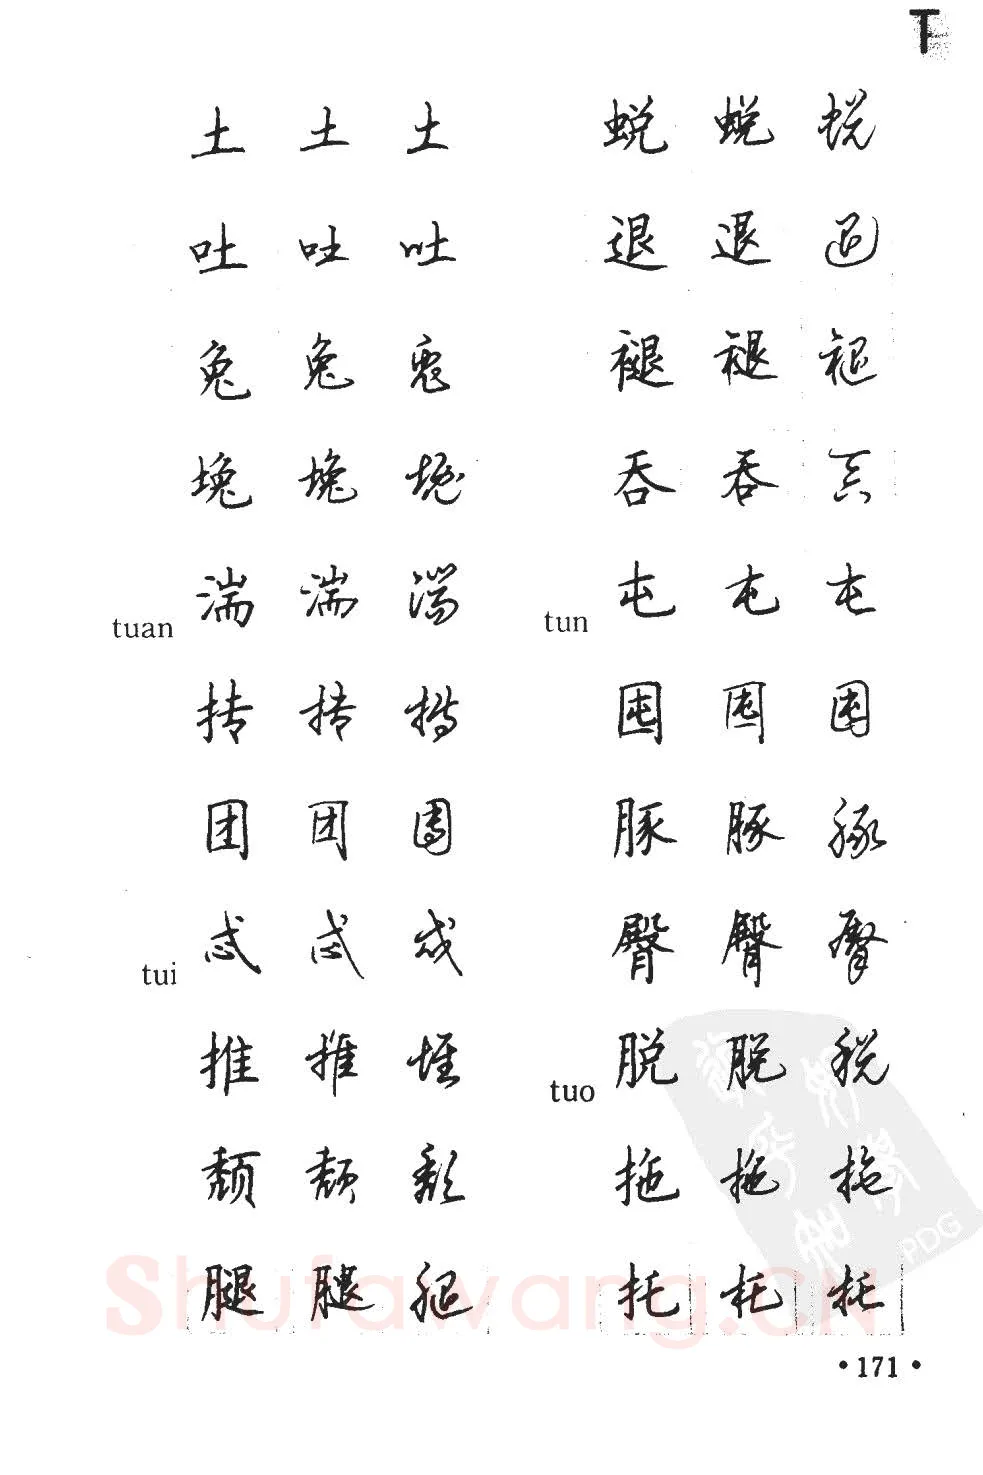 T
土 土 土
吐 吐 吐
兔 兔 兔
堍 堍 堍
tuan 湍 湍 湍
抟 抟 抟
团 团 团
tui 忒 忒 忒
推 推 推
颓 颓 颓
腿 腿 腿
蜕 蜕 蜕
退 退 退
褪 褪 褪
吞 吞 吞
tun 屯 屯 屯
囤 囤 囤
豚 豚 豚
臀 臀 臀
tuo 脱 脱 脱
拖 拖 拖
托 托 托
PDG
Shufawang.CN
·171·